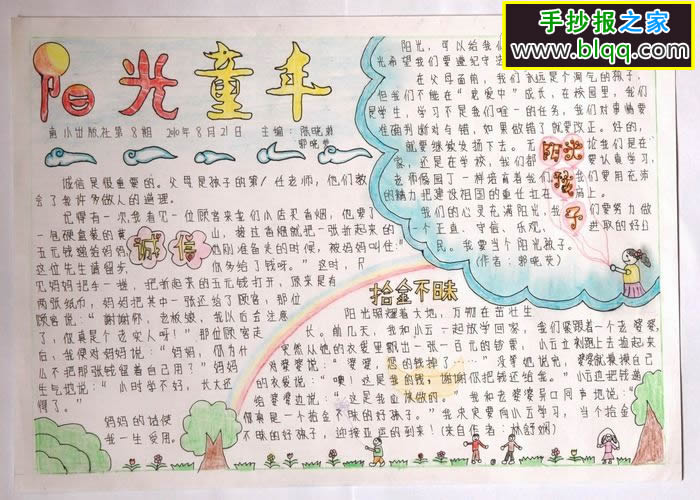 手抄报之家
www.blqq.com
阳光童年
南小出版社第8期 2010年8月21日 主编：陈晓弟
郭晓芳
诚信是很重要的。父母是孩子的第1任老师，他们教
会了我许多做人的道理。
记得有一次，我看见一位顾客来
一包硬盒装的黄山，接过香烟就把一张折起来的
五元钱递给妈妈
刚准备走的时候，被妈妈叫住：“
这位先生请留步，你多给了钱呀。”这时，只
见妈妈把手一摊，把折起来的五元钱打开，原来是有
两张纸币，妈妈把其中一张还给了顾客，那位
顾客说：“谢谢你，老板娘，我以后会注意
了，你真是个老实人呀！”那位顾客走
后，我便对妈妈说：“妈妈，你为什
么不把那张钱留着自己用？”妈妈
生气地说：“小时学不好，长大还
得了。”
妈妈的话使
我一生受用。
诚信
阳光，可以给我们
光希望我们要遵纪守法
在父母面前，我们永远是个淘气的孩子，
但我们不能在“溺爱中”成长，在校园里，我们
是学生，学习不是我们唯一的任务，我们对事情要
准确判断对与错，如果做错了就要改正。好的，
就要继续发扬下去。无论我们是在
家，还是在学校，我们都要认真学习，
老师像园丁一样培育着我们，我们要用充沛
的精力把建设祖国的重任扛在肩上。
我们的心灵充满阳光，我们要努力做
一个正直、守信、乐观、进取的好公
民。我要当个阳光孩子。
（作者：郭晓芳）
阳光
孩
子
拾金不昧
阳光照耀着大地，万物在茁壮生
长。前几天，我和小云一起放学回家，我们紧跟着一个老婆婆，
突然从她的衣袋里飘出一张一百元的钞票，小云立刻跑上去捡起来
对婆婆说：“婆婆，您的钱掉了……”没等她说完，婆婆就摸摸自己
的衣袋说：“噢！这是我的钱，谢谢你把钱还给我。”小云边把钱递
给婆婆边说：“这是我应该做的。”我和老婆婆异口同声地说：“
你真是一个拾金不昧的好孩子。”我决定要向小云学习，当个拾金
不昧的好孩子，迎接亚运的到来！（来自作者：林舒娴）